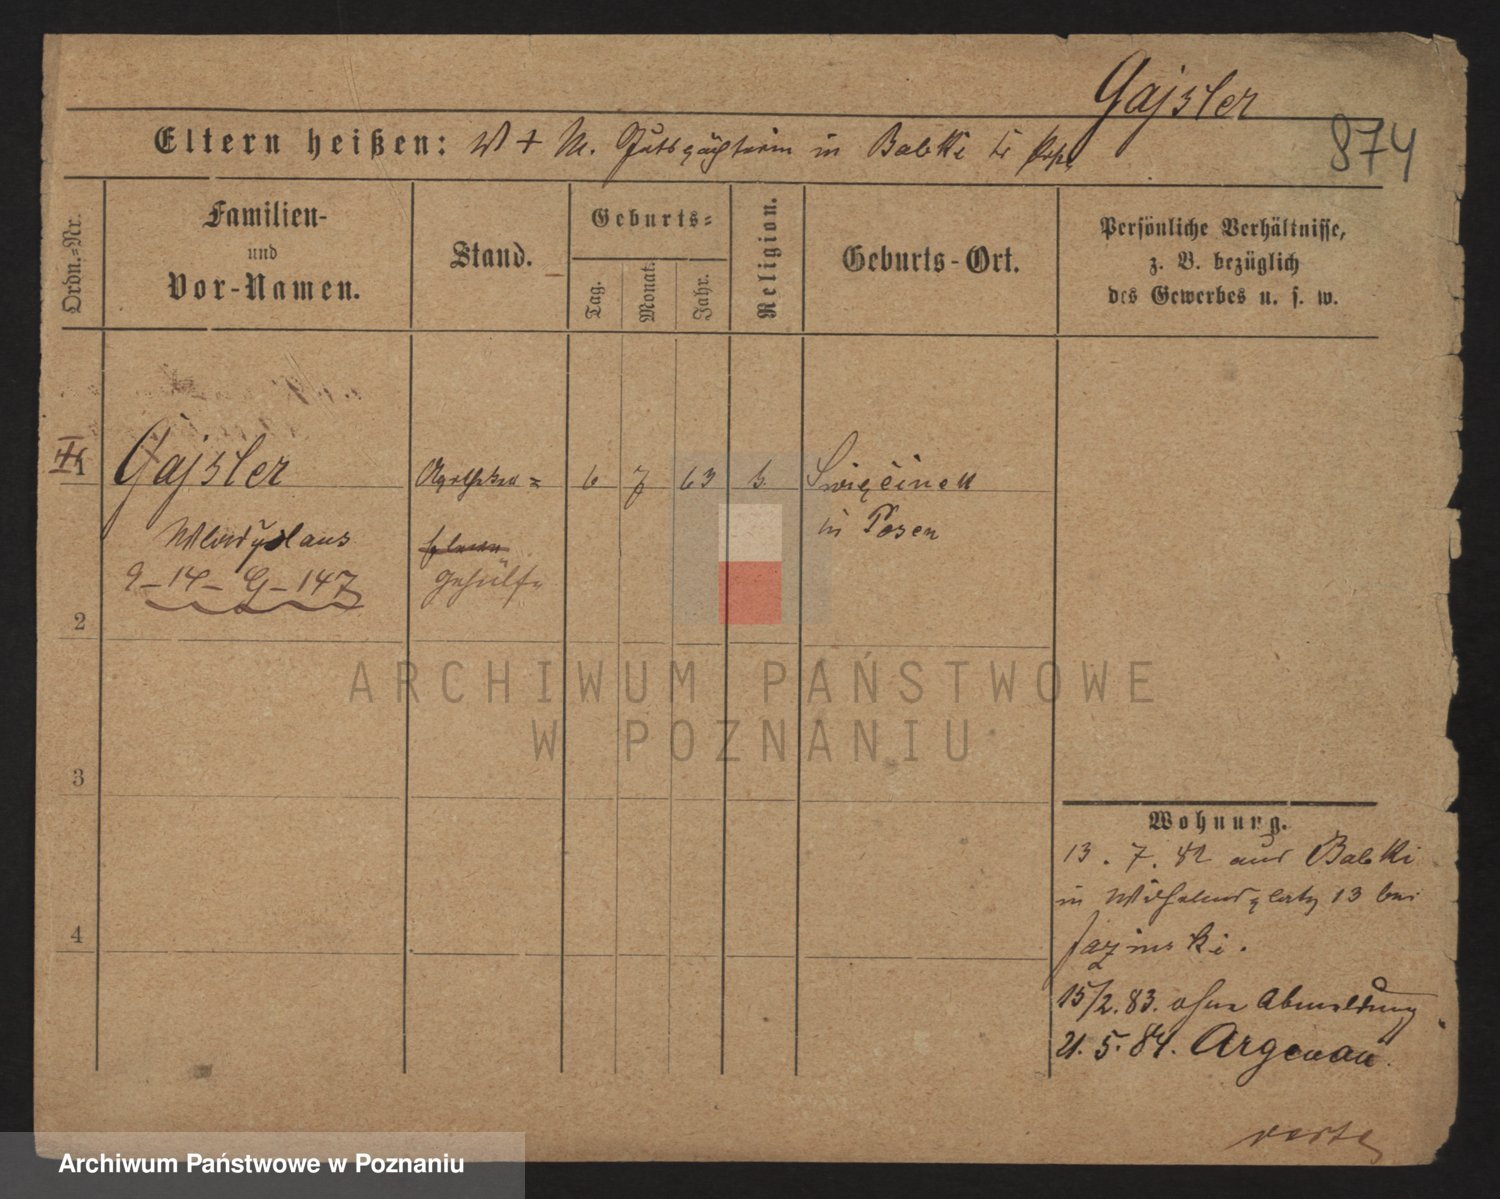 Gajsler
874
Eltern heißen: W + M. Gutspächterin in Babki Kr Posen
Ordn.-Nr.
Familien-
und
Vor-Namen.
Stand.
Geburts-
Tag.
Monat.
Jahr.
Religion.
Geburts-Ort.
Persönliche Verhältnisse,
z. B. bezüglich
des Gewerbes u. s. w.
1 Gajsler Apotheker= 6 7 63 k.
Wladyslaus
in Posen
9-14-G-147
Gehülfe
2
3
4
Wohnung.
13. 7. 82 aus Babki
in Wilhelmsplatz 13 bei
Jazinski.
15/2. 83. ohne Abmeldung
21. 5. 84. Argenau.
verte
ARCHIWUM PAŃSTWOWE
W POZNANIU
Archiwum Państwowe w Poznaniu